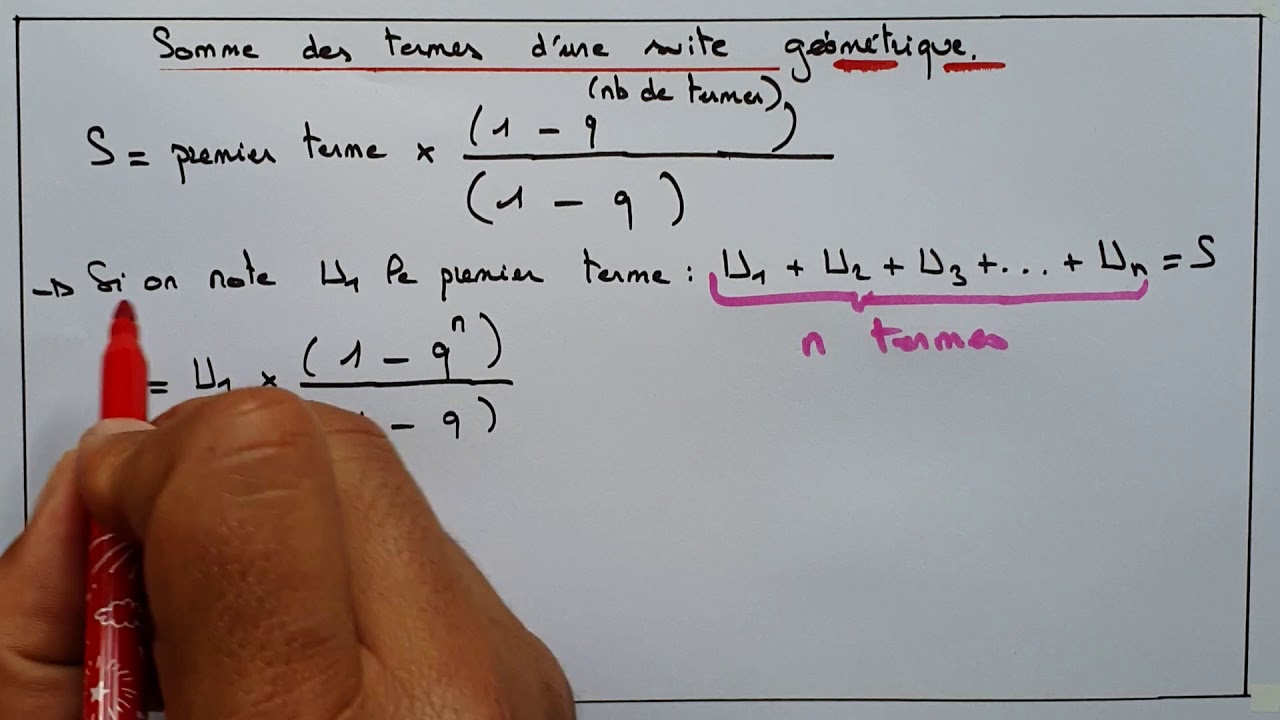 Somme des termes d'une suite géométrique.
(nb de termes)
(1 - q )
S = premier terme ×
(1 - q)
→ Si on note U1 le premier terme : U1 + U2 + U3 + ... + Un = S
n termes
(1 - q^n)
= U1 ×
- q)